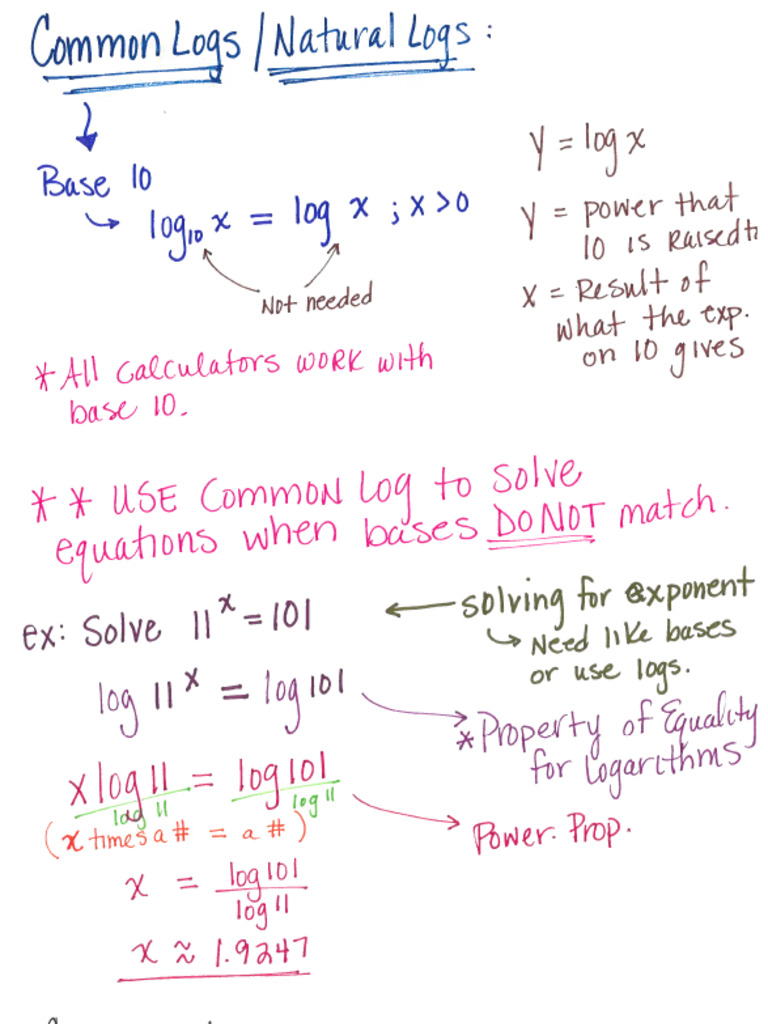 Common Logs / Natural Logs:
Base 10
log₁₀ x = log x ; x > 0
Not needed
y = log x
y = power that
10 is Raised
x = Result of
what the exp.
on 10 gives
* All calculators work with
base 10.
* * USE Common Log to solve
equations when bases DO NOT match.
ex: Solve 11^x = 101
solving for exponent
Need like bases
or use logs.
log 11^x = log 101
* Property of Equality
for Logarithms
x log 11 = log 101
log 11 log 11
(x times a # = a #)
Power. Prop.
x = log 101
log 11
x ≈ 1.9247